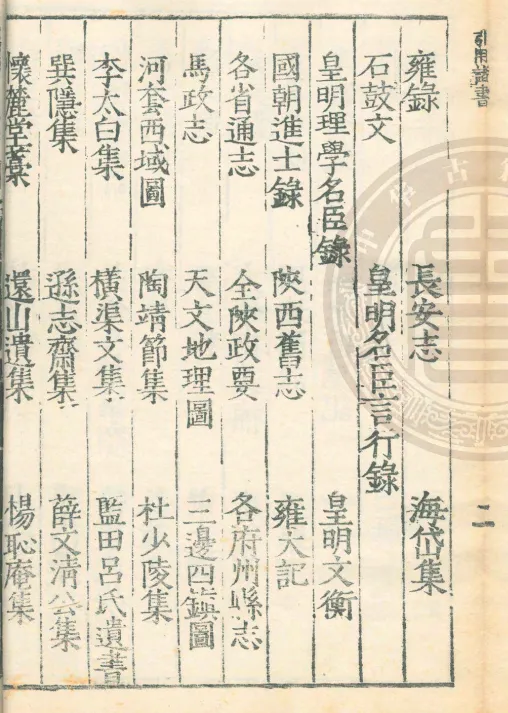 雍錄 長安志 海岱集
石鼓文 皇明名臣言行錄
皇明理學名臣錄 皇明文衡
國朝進士錄 陝西舊志 雍大記
各省通志 全陝政要 各府州縣志
馬政志 天文地理圖 三邊四鎮圖
河套西域圖 陶靖節集 杜少陵集
李太白集 橫渠文集 藍田呂氏遺書
巽隱集 遜志齋集 薛文清公集
懷麓堂藁 還山遺集 楊恥庵集
書
二